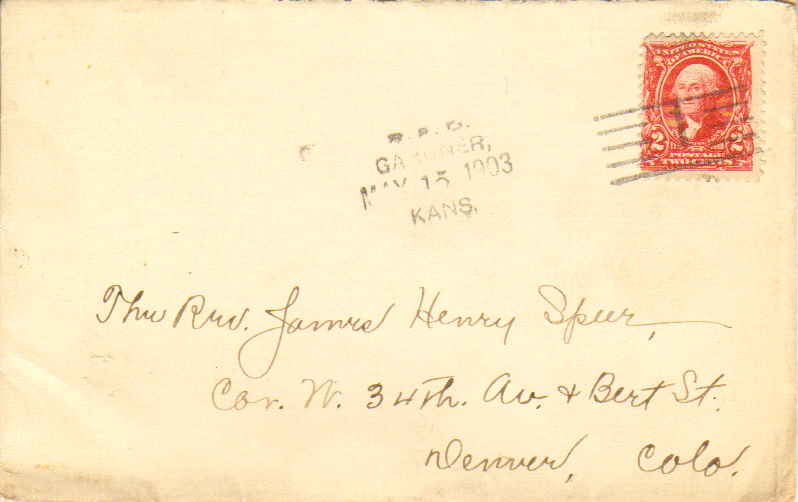 UNITED STATES
OF AMERICA
2 2
POSTAGE
TWO CENTS
R.F.D.
GARDNER,
MAY 15 1903
KANS.
The Rev. James Henry Speer,
Cor. W. 34th. Av. & Bert St.
Denver, Colo.